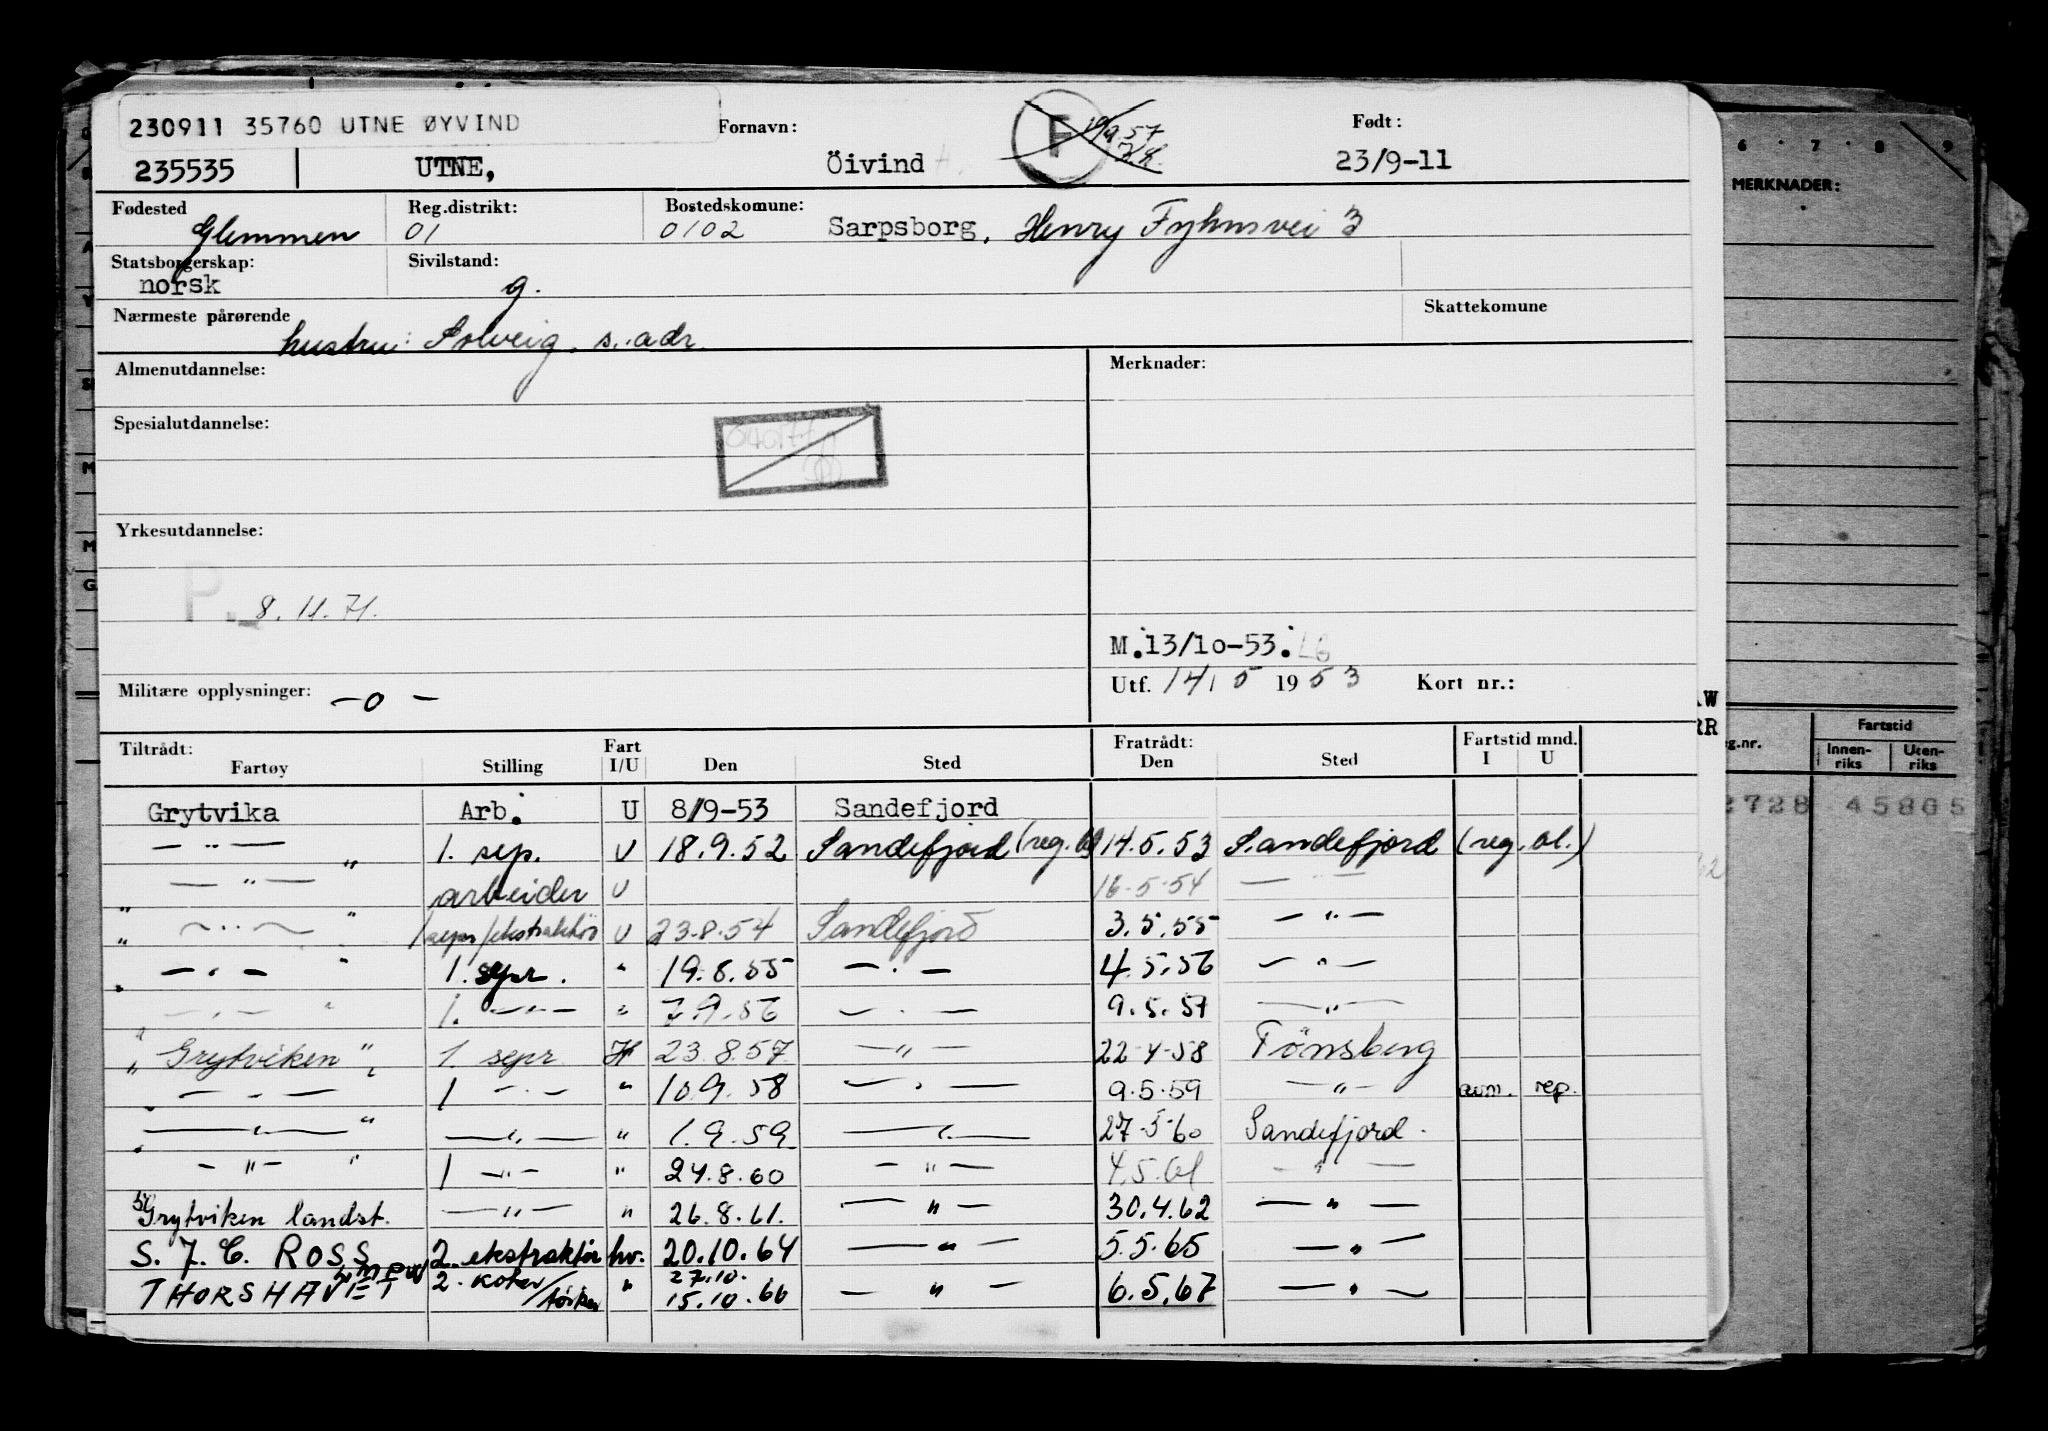 230911 35760 UTNE ØYVIND
Fornavn: F 19/9.57 Født:
235535 UTNE, Öivind 23/9-11
Fødested Reg.distrikt: Bostedskomune:
Glemmen 01 0102 Sarpsborg, Henry Fyhnsvei 3
Statsborgerskap: Sivilstand:
norsk g.
Nærmeste pårørende Skattekomune
hustru: Solveig, s. adr.
Almenutdannelse: Merknader:
Spesialutdannelse:
Yrkesutdannelse:
P. 8.11.71.
M.13/10-53. LG
Militære opplysninger: —o— Utf. 14/5 1953 Kort nr.:
Tiltrådt: Fart Fratrådt: Fartstid mnd.
Fartøy Stilling I/U Den Sted Den Sted I U
Grytvika Arb. U 8/9-53 Sandefjord
— " — " 1. sep. U 18.9.52 Sandefjord (reg. bl) 14.5.53 Sandefjord (reg. ol.)
— " — arbeider U 16.5.54 — " —
" — " — " 1 sepr/ekstraktör U 23.8.54 Sandefjord 3.5.55 — " —
" — " — " 1. sepr. " 19.8.55 — " — 4.5.56 — " —
— " — " 1. — " — " 7.9.56 — " — 9.5.57 — " —
" Grytviken " 1. sepr H 23.8.57 — " — 22-4-58 Tönsberg
" — " — 1 — " — " 10.9.58 — " — 9.5.59 — " — avm. rep.
" — " — " — " — " 1.9.59 — " — 27-5-60 Sandefjord.
— " — " 1 — " — " 24.8.60 — " — 4.5.61 — " —
Grytviken landst. — " — " 26.8.61. — " — 30.4.62 — " —
S. J. C. ROSS 2. ekstraktör hv. 20.10.64 — " — 5.5.65 — " —
THORSHAVET 2. koker/törker " 27.10. 15.10.66 — " — 6.5.67 — " —
6 7 8 9
MERKNADER:
Fartstid
g.nr. Innen-riks Uten-riks
2728 45805